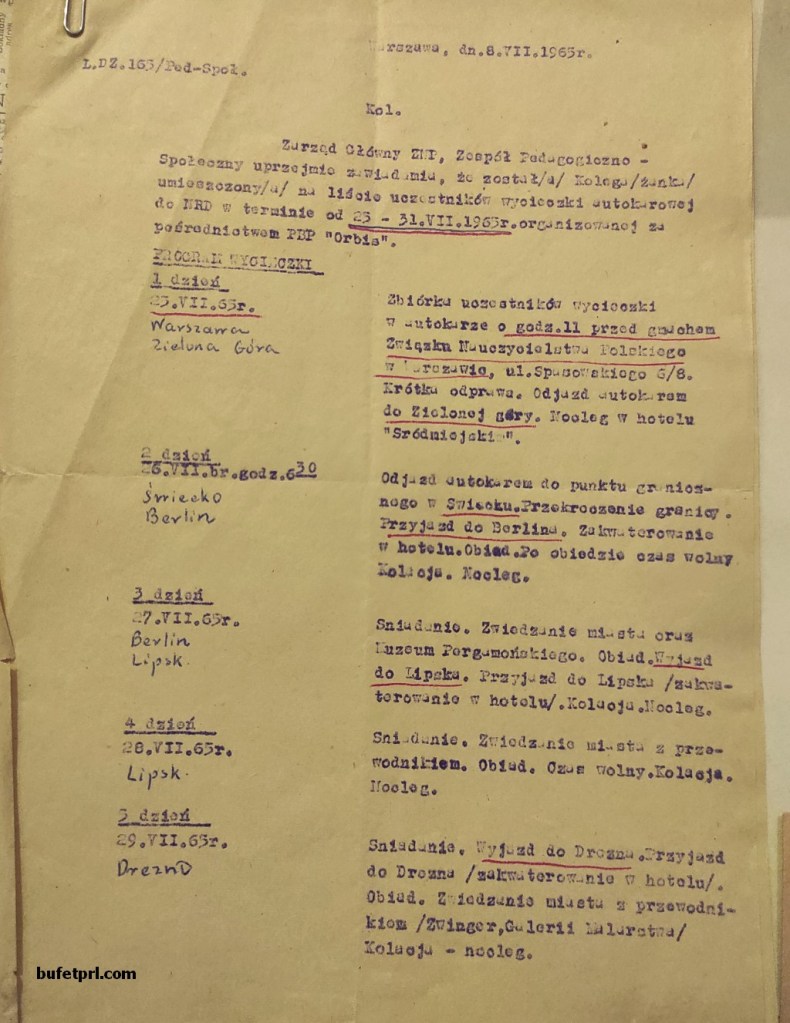 Warszawa, dn.8.VII.1965r.
L.DZ.163/Ped-Społ.
Kol.
Zarząd Główny ZNP, Zespół Pedagogiczno -
Społeczny uprzejmie zawiadamia, że został/a/ Kolega/żanka/
umieszczony/a/ na liście uczestników wycieczki autokarowej
do NRD w terminie od 25 - 31.VII.1965r.organizowanej za
pośrednictwem PBP "Orbis".
PROGRAM WYCIECZKI
1 dzień
25.VII.65r.
Warszawa
Zielona Góra
Zbiórka uczestników wycieczki
w autokarze o godz.11 przed gmachem
Związku Nauczycielstwa Polskiego
w Warszawie, ul.Spasowskiego 6/8.
Krótka odprawa. Odjazd autokarem
do Zielonej góry. Nocleg w hotelu
"Sródmiejskim".
2 dzień
26.VII.br.godz.6 30
Świecko
Berlin
Odjazd autokarem do punktu granicz-
nego w Swiecku.Przekroczenie granicy.
Przyjazd do Berlina. Zakwaterowanie
w hotelu.Obiad.Po obiedzie czas wolny
Kolacja. Nocleg.
3 dzień
27.VII.65r.
Berlin
Lipsk.
Sniadanie. Zwiedzanie miasta oraz
Muzeum Pergamońskiego. Obiad.Wyjazd
do Lipska. Przyjazd do Lipska /zakwa-
terowanie w hotelu/.Kolacja.Nocleg.
4 dzień
28.VII.65r.
Lipsk.
Sniadanie. Zwiedzanie miasta z prze-
wodnikiem. Obiad. Czas wolny.Kolacja.
Nocleg.
5 dzień
29.VII.65r.
Drezno
Sniadanie. Wyjazd do Drezna.Przyjazd
do Drezna /zakwaterowanie w hotelu/.
Obiad. Zwiedzanie miasta z przewodni-
kiem /Zwinger,Galerii Malarstwa/
Kolacja - nocleg.
bufetprl.com